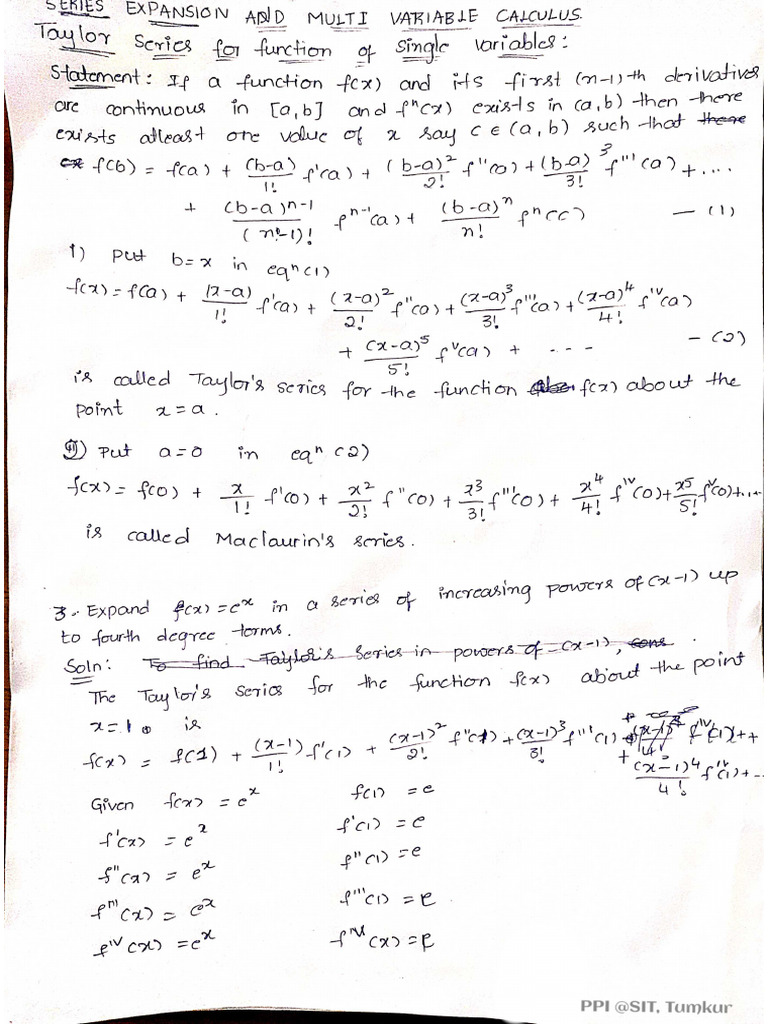 SERIES EXPANSION AND MULTI VARIABLE CALCULUS.
Taylor Series for function of Single variables:
Statement: If a function f(x) and its first (n-1)th derivatives
are continuous in [a,b] and fⁿ(x) exists in (a,b) then there
exists atleast one value of x say c∈(a,b) such that
f(b) = f(a) + (b-a)/1! f'(a) + (b-a)²/2! f''(0) + (b-a)³/3! f'''(a) + ....
+ (b-a)ⁿ⁻¹/(n-1)! fⁿ⁻¹(a) + (b-a)ⁿ/n! fⁿ(c) — (1)
1) Put b=x in eqⁿ(1)
f(x) = f(a) + (x-a)/1! f'(a) + (x-a)²/2! f''(0) + (x-a)³/3! f'''(a) + (x-a)⁴/4! fⁱᵛ(a)
+ (x-a)⁵/5! fᵛ(a) + --- – (2)
is called Taylor's series for the function f(x) about the
point x=a.
Put a=0 in eqⁿ (2)
f(x) = f(0) + x/1! f'(0) + x²/2! f''(0) + x³/3! f'''(0) + x⁴/4! fⁱᵛ(0) + x⁵/5! fᵛ(0) + ...
is called Maclaurin's series.
3. Expand f(x) = eˣ in a series of increasing powers of (x-1) up
to fourth degree terms.
Soln: To find Taylor's Series in powers of (x-1),
The Taylor's series for the function f(x) about the point
x=1. is
f(x) = f(1) + (x-1)/1! f'(1) + (x-1)²/2! f''(1) + (x-1)³/3! f'''(1)
+ (x-1)⁴/4! fⁱᵛ(1) + ..
Given f(x) = eˣ f(1) = e
f'(x) = eˣ f'(1) = e
f''(x) = eˣ f''(1) = e
f'''(x) = eˣ f'''(1) = e
fⁱᵛ(x) = eˣ fⁱᵛ(x) = e
PPI @SIT, Tumkur